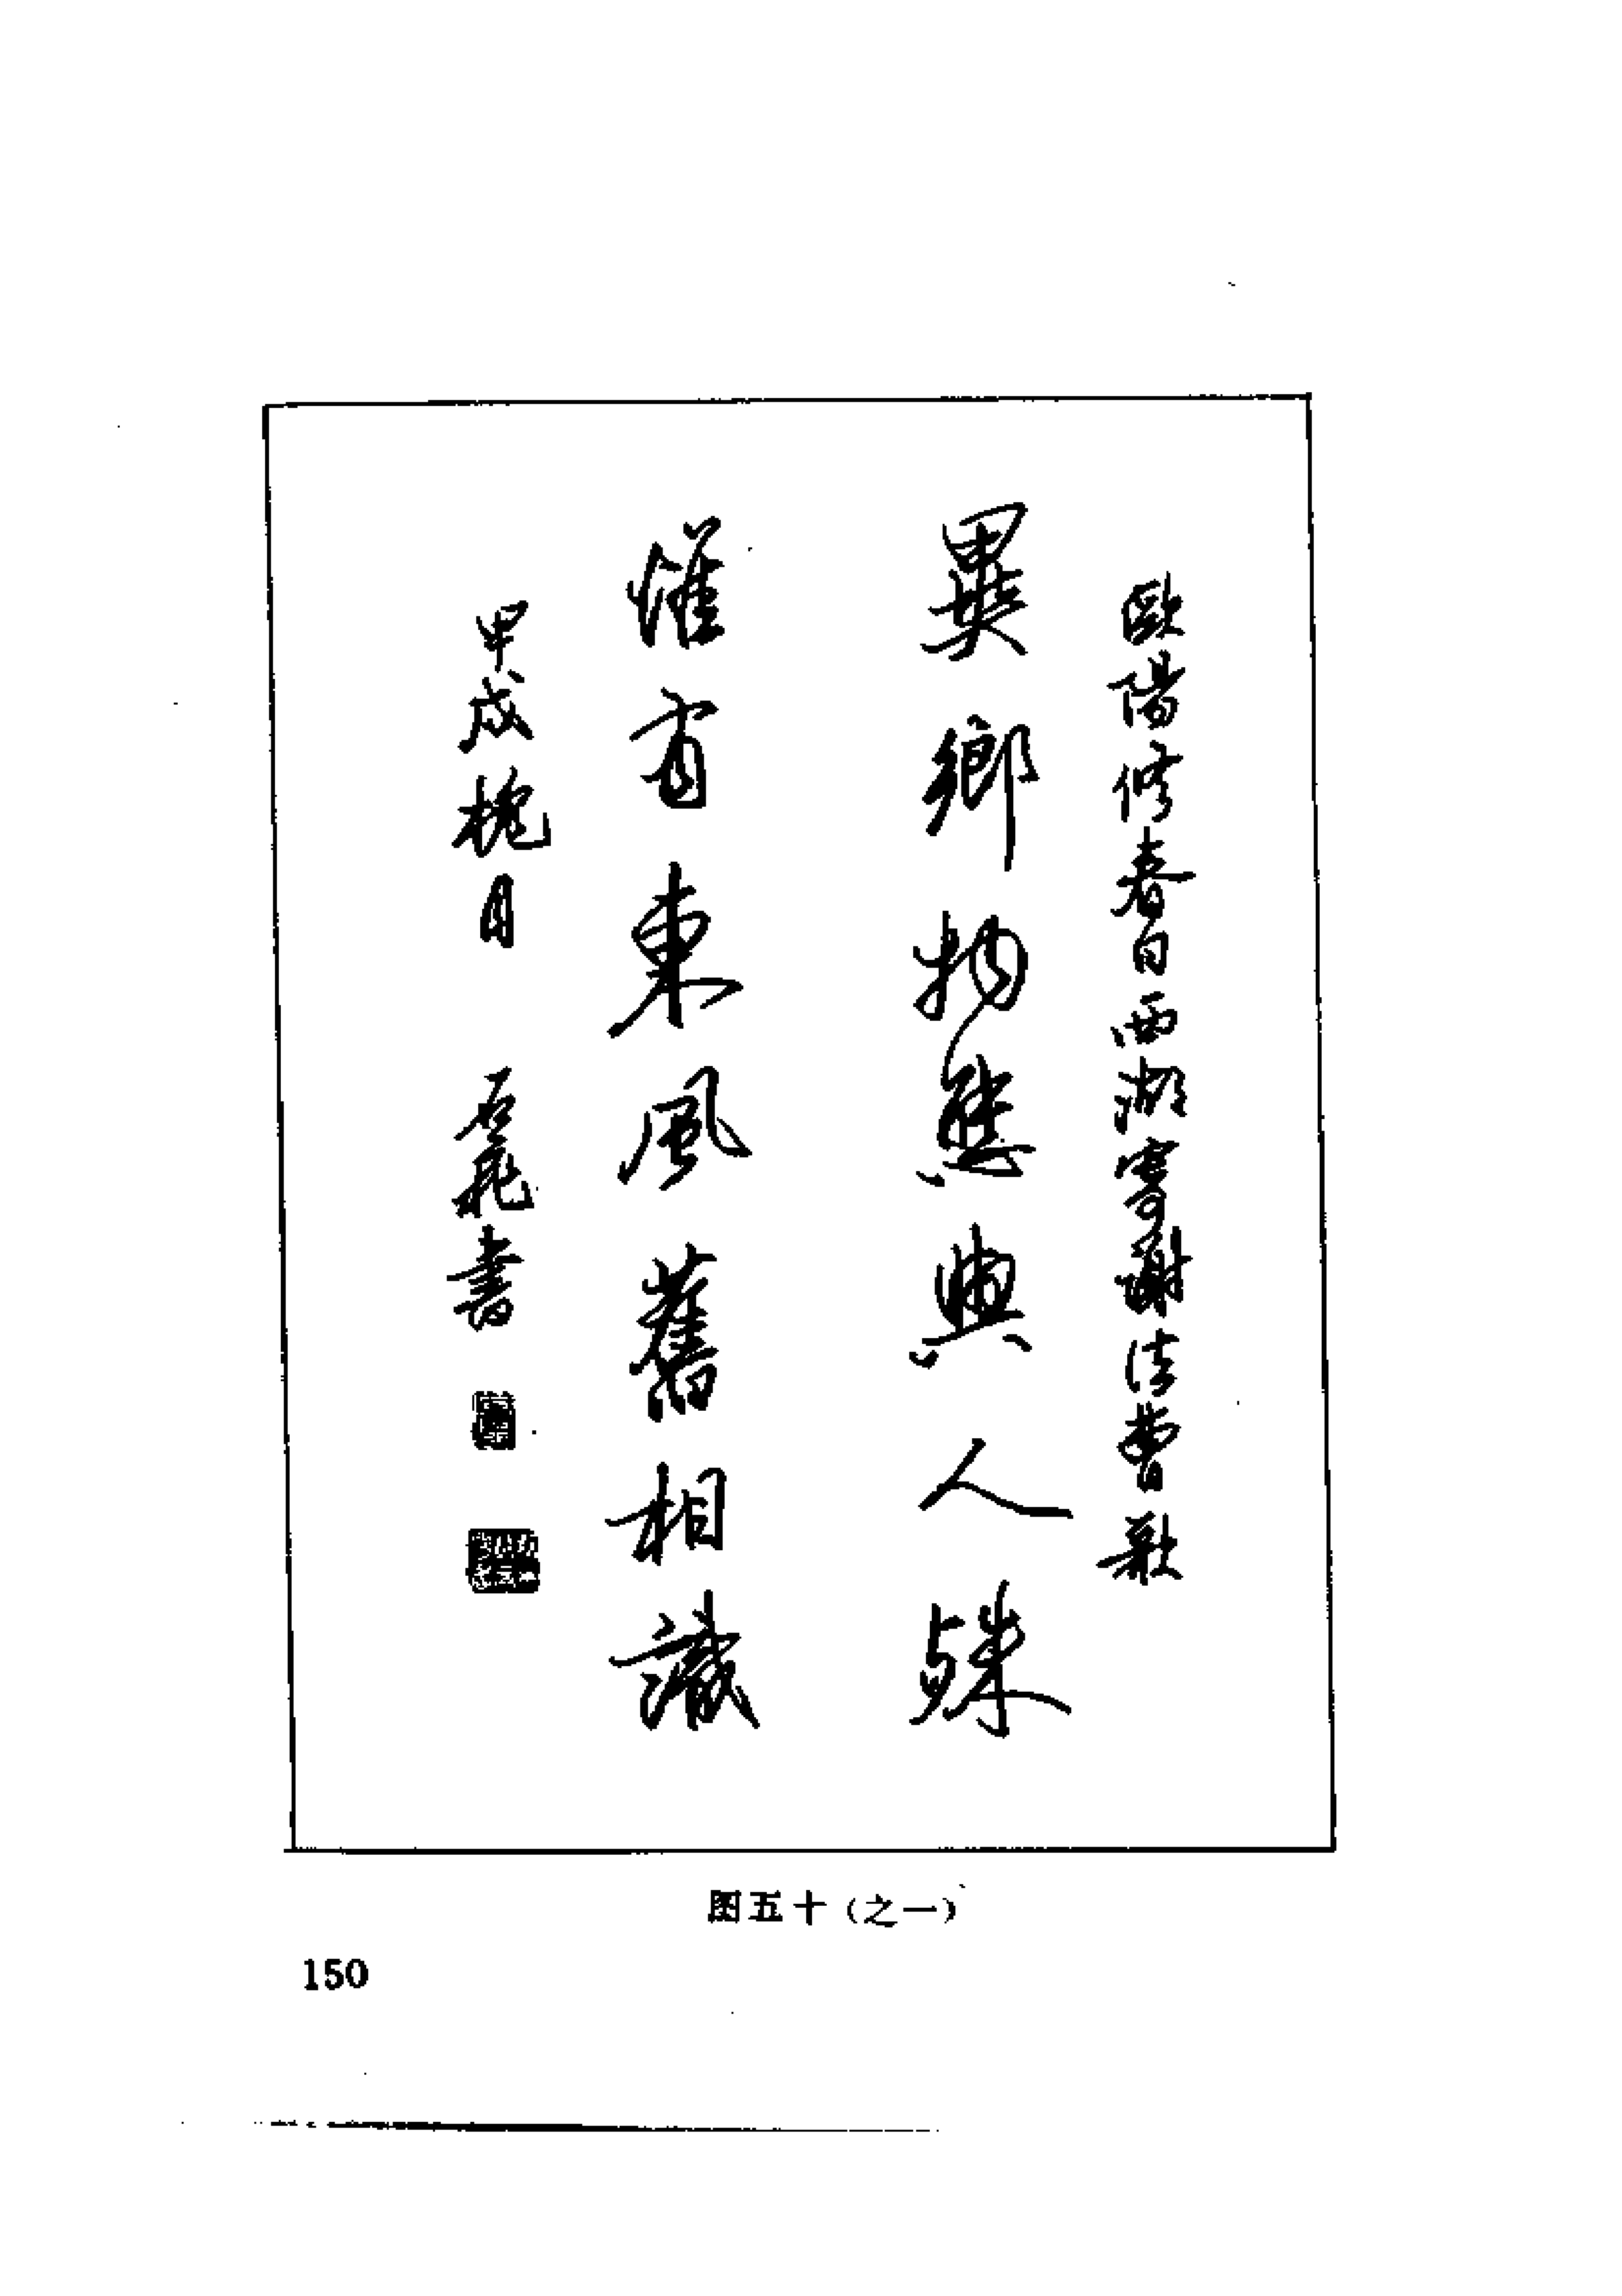 歐陽修春日西湖寄謝法曹歌
異鄉物態與人殊
惟有東風舊相識
甲戌槐月 石飛書
图五十(之一)
150